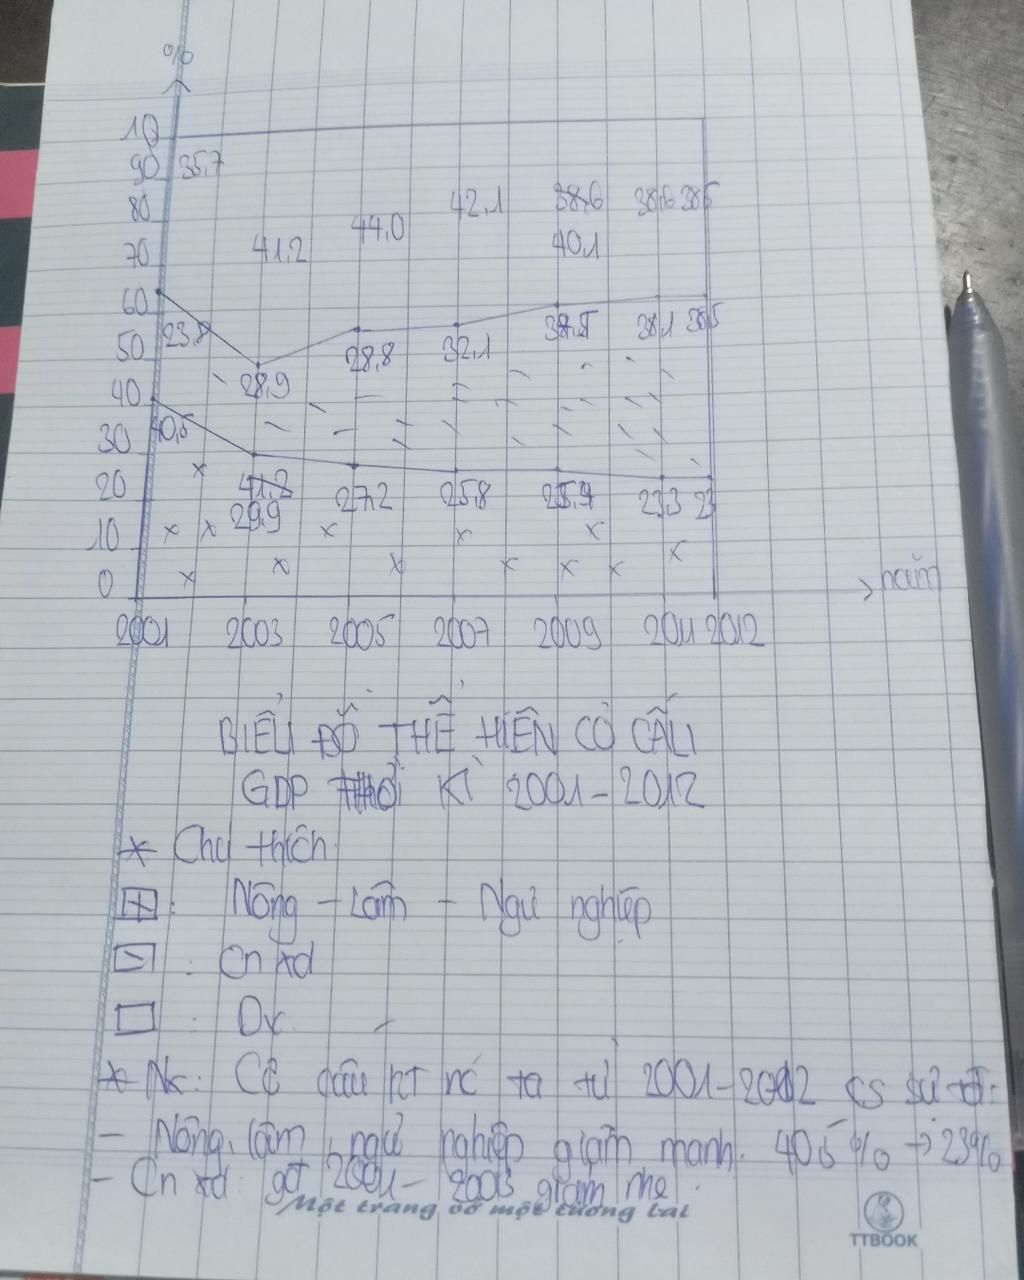 %
100
90 35,7
80 42,1 38,6 38,6 38,5
44,0
70 41,2 40,1
60
50 23,8 28,8 32,1 38,5 38,1 38,5
40 28,9
30 40,5
20 41,2 27,2 25,8 23,3 23
29,9
10
0 năm
2001 2003 2005 2007 2009 2011 2012
BIỂU ĐỒ THỂ HIỆN CƠ CẤU
GDP THỜI KÌ 2001-2012
* Chú thích
: Nông - Lâm - Ngư nghiệp
: Cn xd
: Dv
* Nx: Cơ cấu KT nc ta từ 2001-2012 cs sự
- Nông, lâm, ngư nghiệp giảm mạnh. 40,5% → 23%
- Cn xd: gđ 2001- 2003 giảm nhẹ.
Một trang vở một tương lai
TTBOOK